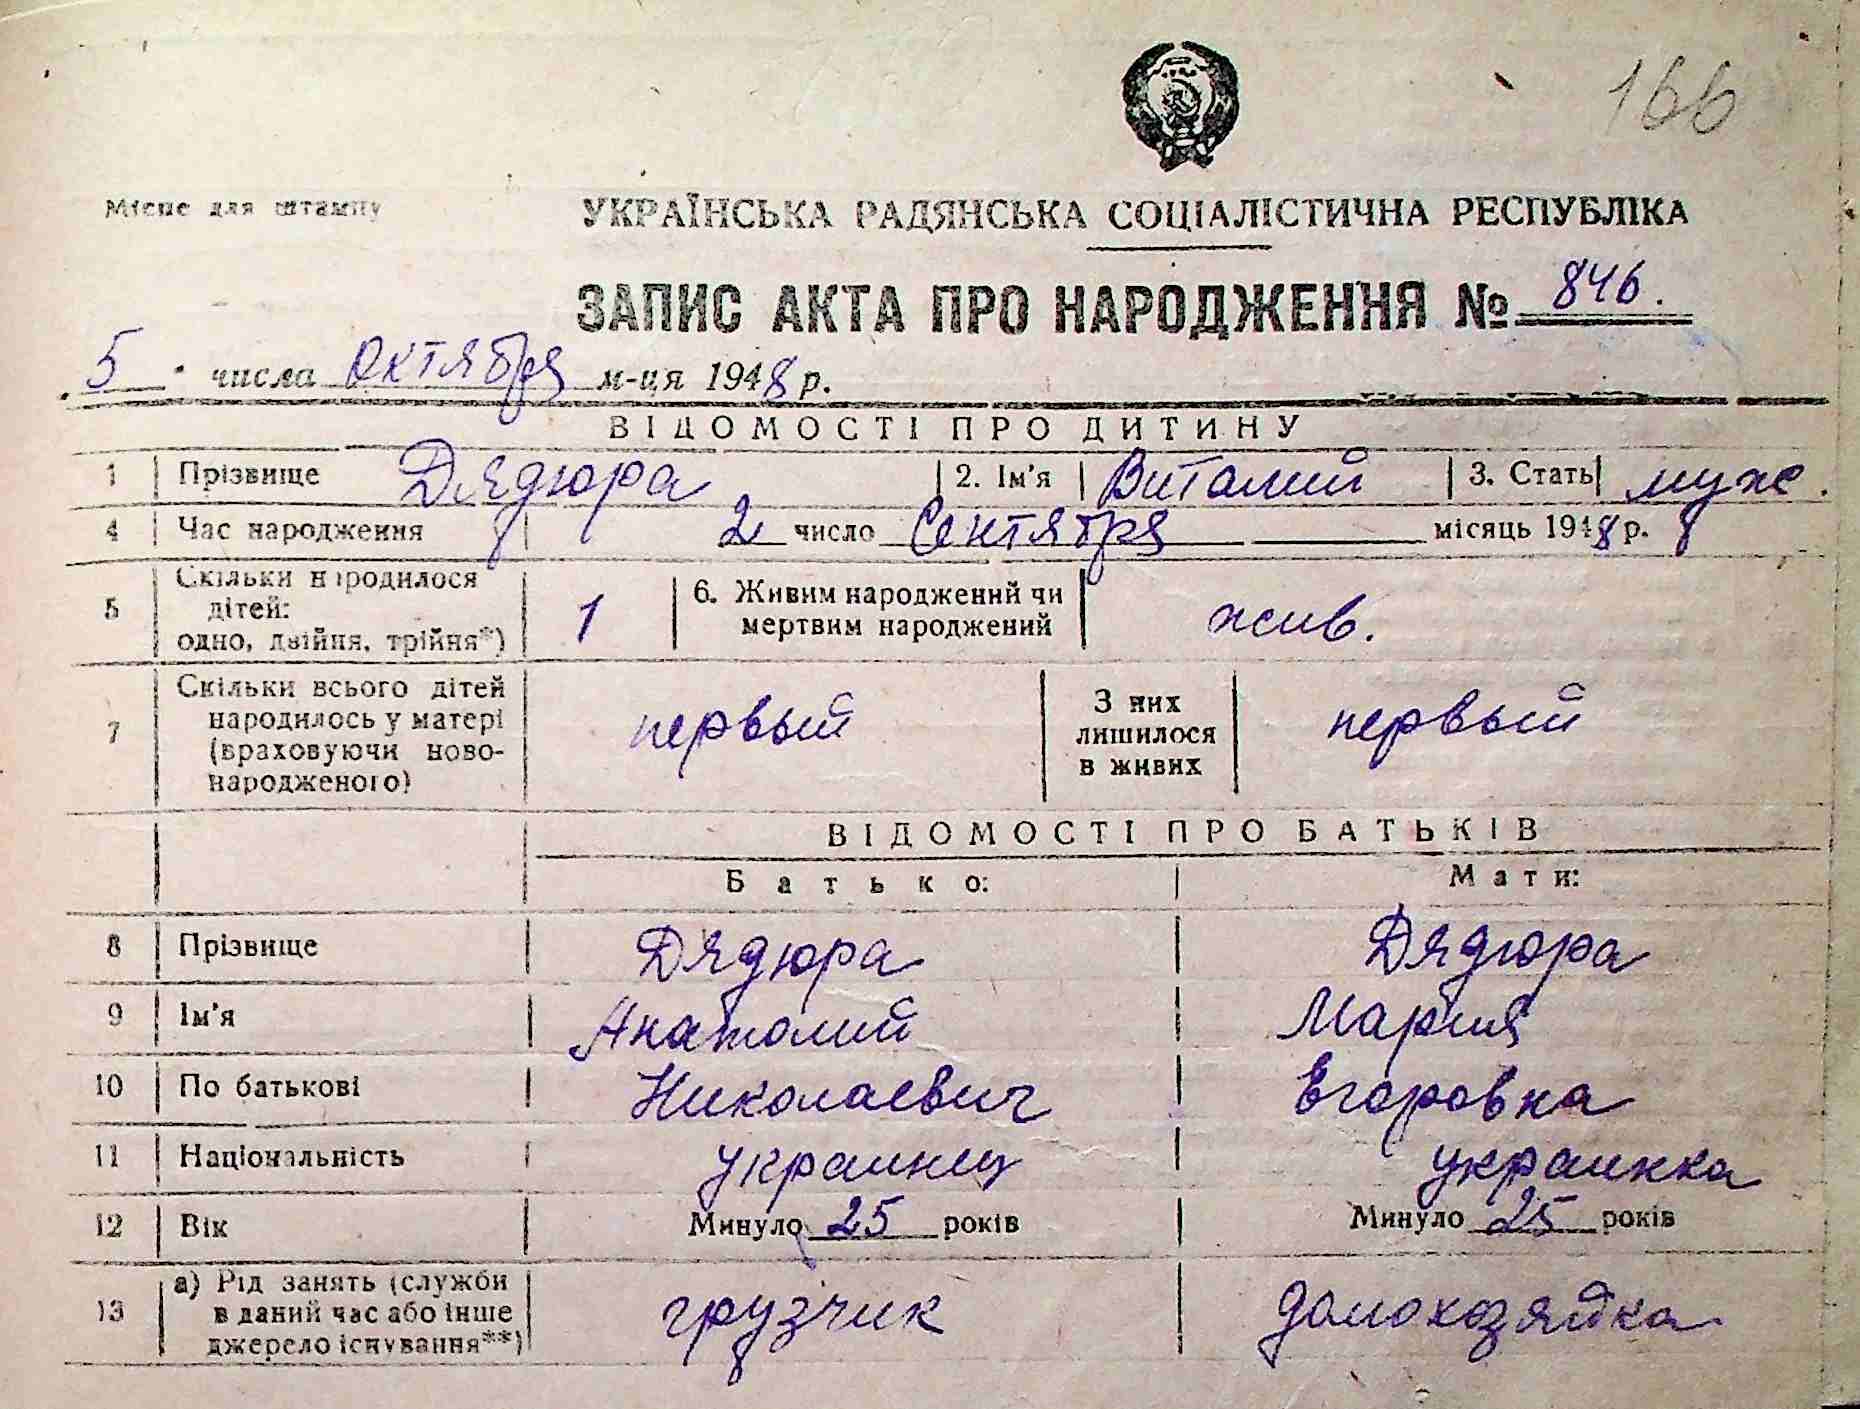 166
Місце для штампу
УКРАЇНСЬКА РАДЯНСЬКА СОЦІАЛІСТИЧНА РЕСПУБЛІКА
ЗАПИС АКТА ПРО НАРОДЖЕННЯ № 846.
5 числа Октября м-ця 1948 р.
ВІДОМОСТІ ПРО ДИТИНУ
1 Прізвище Дядюра 2. Ім'я Виталий 3. Стать муж.
4 Час народження 2 число Сентября місяць 1948 р.
5 Скільки народилося
дітей:
одно, двійня, трійня*) 1 6. Живим народжений чи
мертвим народжений жив.
7 Скільки всього дітей
народилось у матері
(враховуючи ново-
народженого) первый З них
лишилося
в живих первый
ВІДОМОСТІ ПРО БАТЬКІВ
Батько: Мати:
8 Прізвище Дядюра Дядюра
9 Ім'я Анатолий Мария
10 По батькові Николаевич Егоровна
11 Національність украинец украинка
12 Вік Минуло 25 років Минуло 25 років
13 а) Рід занять (служби
в даний час або інше
джерело існування**) грузчик домохозяйка